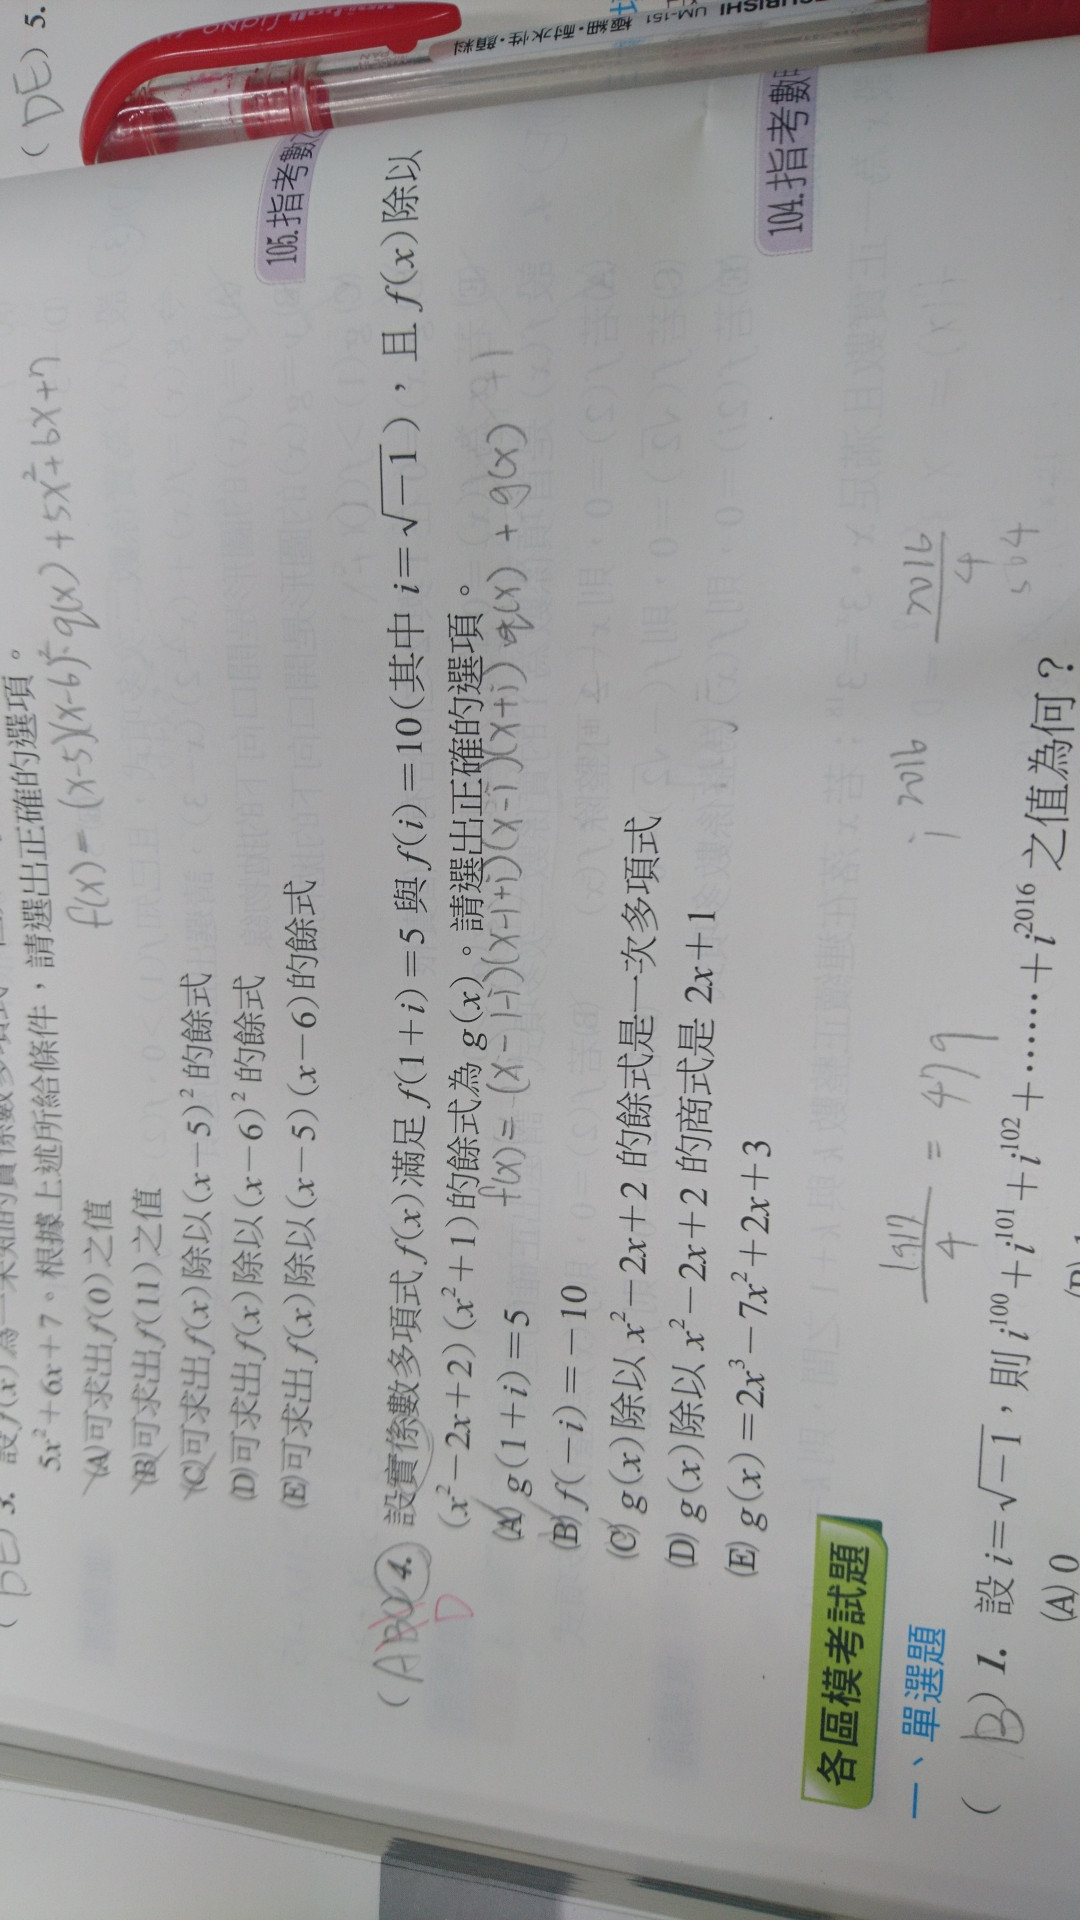 (DE) 5.
UM-151 極細・耐水性・顏料
(DE) 3. 設f(x)為一未知的實係數多項式
5x²+6x+7。根據上述所給條件，請選出正確的選項。
f(x)=(x-5)(x-6)²·q(x)+5x²+6x+7
(A)可求出f(0)之值
(B)可求出f(11)之值
(C)可求出f(x)除以(x－5)²的餘式
(D)可求出f(x)除以(x－6)²的餘式
(E)可求出f(x)除以(x－5)(x－6)的餘式
105.指考數
(AB) 4. 設實係數多項式f(x)滿足f(1＋i)＝5與f(i)＝10(其中i＝√－1)，且f(x)除以
D
(x²－2x＋2)(x²＋1)的餘式為g(x)。請選出正確的選項。
f(x)=(x-1-i)(x-1+i)(x-i)(x+i) q(x) + g(x)
(A) g(1＋i)＝5
(B) f(－i)＝－10
(C) g(x)除以x²－2x＋2的餘式是一次多項式
(D) g(x)除以x²－2x＋2的商式是2x＋1
(E) g(x)＝2x³－7x²＋2x＋3
104.指考數
各區模考試題
一、單選題
1917/4 = 479
i 2016
2016/4
504
(B) 1. 設i＝√－1，則i¹⁰⁰＋i¹⁰¹＋i¹⁰²＋……＋i²⁰¹⁶之值為何？
(A) 0